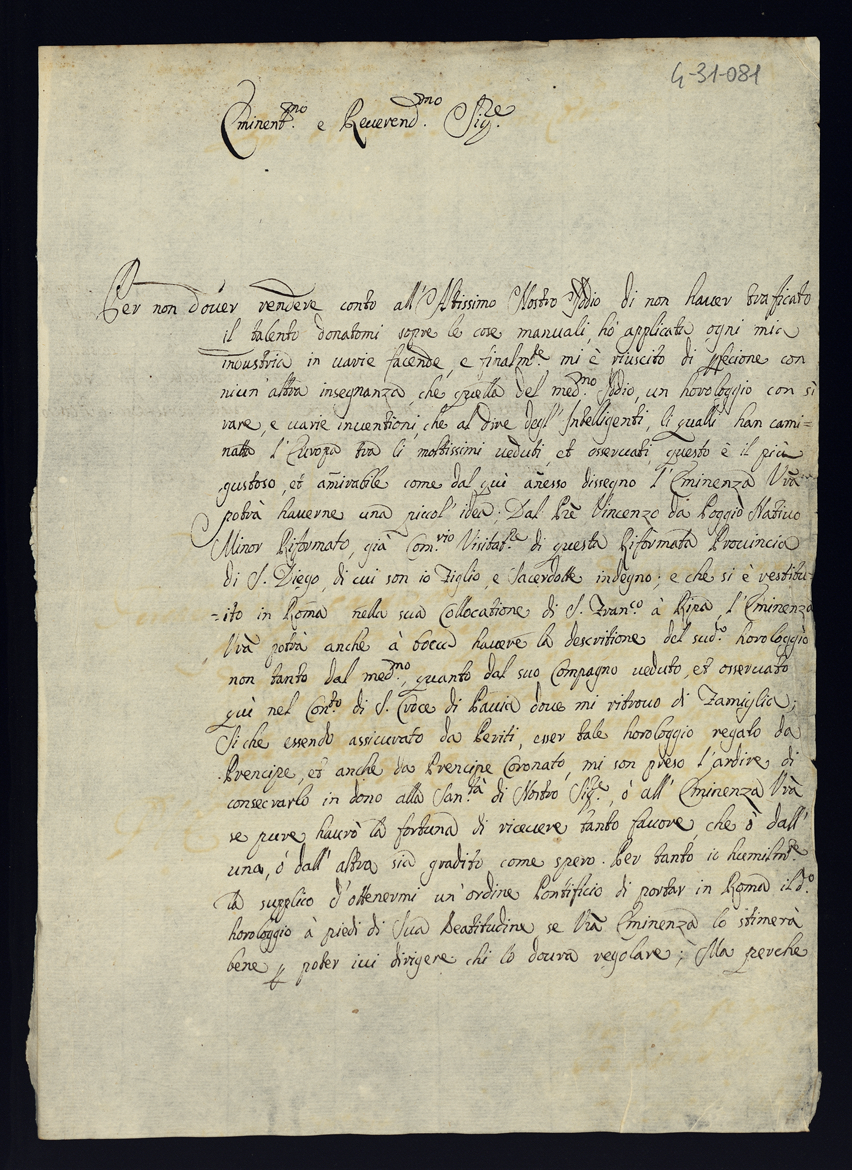 4-31-081
Eminent.mo e Reverend.mo Sig.e
Per non dover rendere conto all'Altissimo Nostro Iddio di non haver trafficato
il talento donatomi sopre le cose manuali, hò applicata ogni mia
industria in varie facende, e finalm.te mi è riuscito di perfecione con
niun'altra insegnanza, che quella del med.mo Iddio, un horologgio con sì
rare, e varie inventioni, che al dire degl'Intelligenti, li quali han cami=
natto l'Europa tra li moltissimi veduti, et osservati questo è il più
gustoso, et amirabile come dal quì añesso dissegno l'Eminenza Vrã
potrà haverne una picol'idea; Dal Prẽ Vincenzo da Poggio Nativo
Minor Riformato, già Com.rio Visitat.re di questa Riformata Provincia
di S. Diego, di cui son io Figlio, e Sacerdotte indegno; e che si è restitu=
=ito in Roma nella sua Collocatione di S. Fran.co à Ripa, l'Eminenza
Vrã potrà anche à bocca havere la descritione del sud.o horologgio
non tanto dal med.mo, quanto dal suo Compagno veduto, et osservato
quì nel Con.to di S. Croce di Pavia dove mi ritrovo di Famiglia;
Siche essendo assicurato da Periti, esser tale horologgio regalo da
Prencipe, et anche da Prencipe Coronato, mi son preso l'ardire di
consecrarlo in dono alla San.tà di Nostro Sig.re, ò all'Eminenza Vrã
se pure haurò la fortuna di ricevere tanto favore, che ò dall'
una, ò dall'altra sia gradito come spero. Per tanto io humilm.te
la supplico d'ottenermi un'ordine Pontificio di portar in Roma il d.o
horologgio à piedi di Sua Beatitudine se Vrã Eminenza lo stimerà
bene p poter ivi dirigere chi lo dovrà regolare; Ma perche